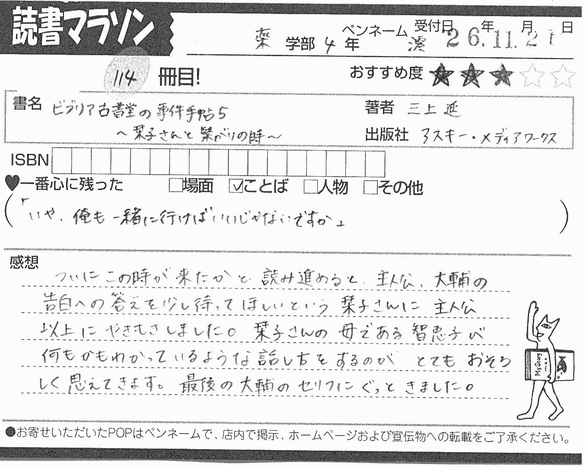 読書マラソン
薬 学部 4 年 ペンネーム 湊 受付日 26年 11月 21日
114 冊目! おすすめ度 ★★★☆☆
書名 ビブリア古書堂の事件手帖5 著者 三上 延
～栞子さんと繋がりの時～ 出版社 アスキー・メディアワークス
ISBN
♥一番心に残った □場面 ☑ことば □人物 □その他
(「いや、俺も一緒に行けばいいじゃないですか」)
感想
ついにこの時が来たかと読み進めると、主人公、大輔の
告白への答えを少し待ってほしいという栞子さんに主人公
以上にやきもきしました。栞子さんの母である智恵子が
何もかもわかっているような話し方をするのが とてもおそろ
しく思えてきます。最後の大輔のセリフにぐっときました。
●お寄せいただいたPOPはペンネームで、店内で掲示、ホームページおよび宣伝物への転載をご了承ください。